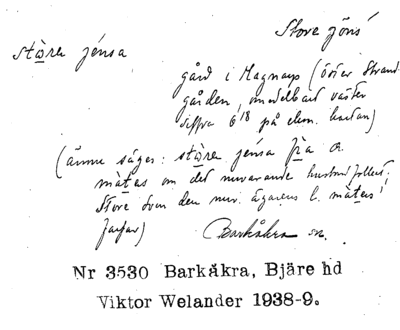 Store Jöns'
störa jénsa
gård i Magnarp (öster Strand-
gården, omedelbart väster
siffra 6 18 på ekon. kartan)
(ännu säges: störa jénsa fra a
màtas om det nuvarande husbondfolket;
Store Svan den nuv. ägarens l. màtens'
farfar) Barkåkra sn.
Nr 3530 Barkåkra, Bjäre hd
Viktor Welander 1938-9.